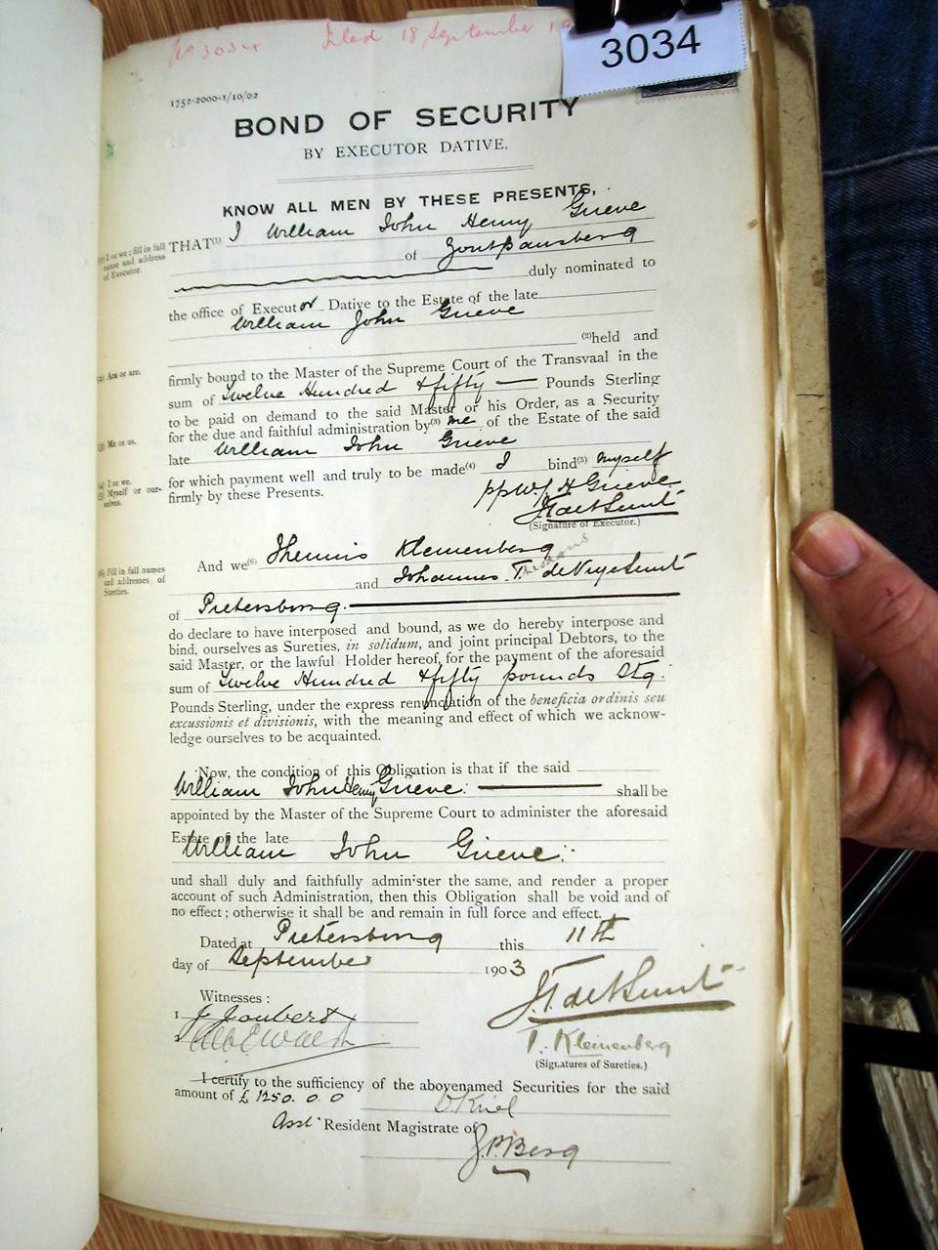 No 3034. Filed 18 September
3034
1752-2000-1/10/02
BOND OF SECURITY
BY EXECUTOR DATIVE.
KNOW ALL MEN BY THESE PRESENTS,
(1) I or we; fill in full name and address of Executor.
THAT(1) I William John Henry Grieve
of Zoutpansberg
duly nominated to
the office of Executor Dative to the Estate of the late
William John Grieve
(2) Am or are.
(2)held and
firmly bound to the Master of the Supreme Court of the Transvaal in the
sum of Twelve Hundred & fifty — Pounds Sterling
to be paid on demand to the said Master or his Order, as a Security
(3) Me or us.
for the due and faithful administration by(3) me of the Estate of the said
late William John Grieve
(4) I or we.
for which payment well and truly to be made(4) I bind(5) myself
(5) Myself or ourselves.
firmly by these Presents.
pp W. J. H Grieve
(Signature of Executor.)
(6) Fill in full names and addresses of Sureties.
And we(6) Klemenberg
and Johannes T.
of Pietersburg.
do declare to have interposed and bound, as we do hereby interpose and
bind, ourselves as Sureties, in solidum, and joint principal Debtors, to the
said Master, or the lawful Holder hereof, for the payment of the aforesaid
sum of Twelve Hundred & fifty pounds Stg.
Pounds Sterling, under the express renunciation of the beneficia ordinis seu
excussionis et divisionis, with the meaning and effect of which we acknow-
ledge ourselves to be acquainted.
Now, the condition of this Obligation is that if the said
William John Henry Grieve. shall be
appointed by the Master of the Supreme Court to administer the aforesaid
Estate of the late
William John Grieve.
und shall duly and faithfully administer the same, and render a proper
account of such Administration, then this Obligation shall be void and of
no effect; otherwise it shall be and remain in full force and effect.
Dated at Pietersburg this 11th
day of September 1903
Witnesses :
1 J Joubert
2
T. Kleinenberg
(Signatures of Sureties.)
I certify to the sufficiency of the abovenamed Securities for the said
amount of £ 1250. 0. 0
Asst Resident Magistrate of
Z.P. Berg